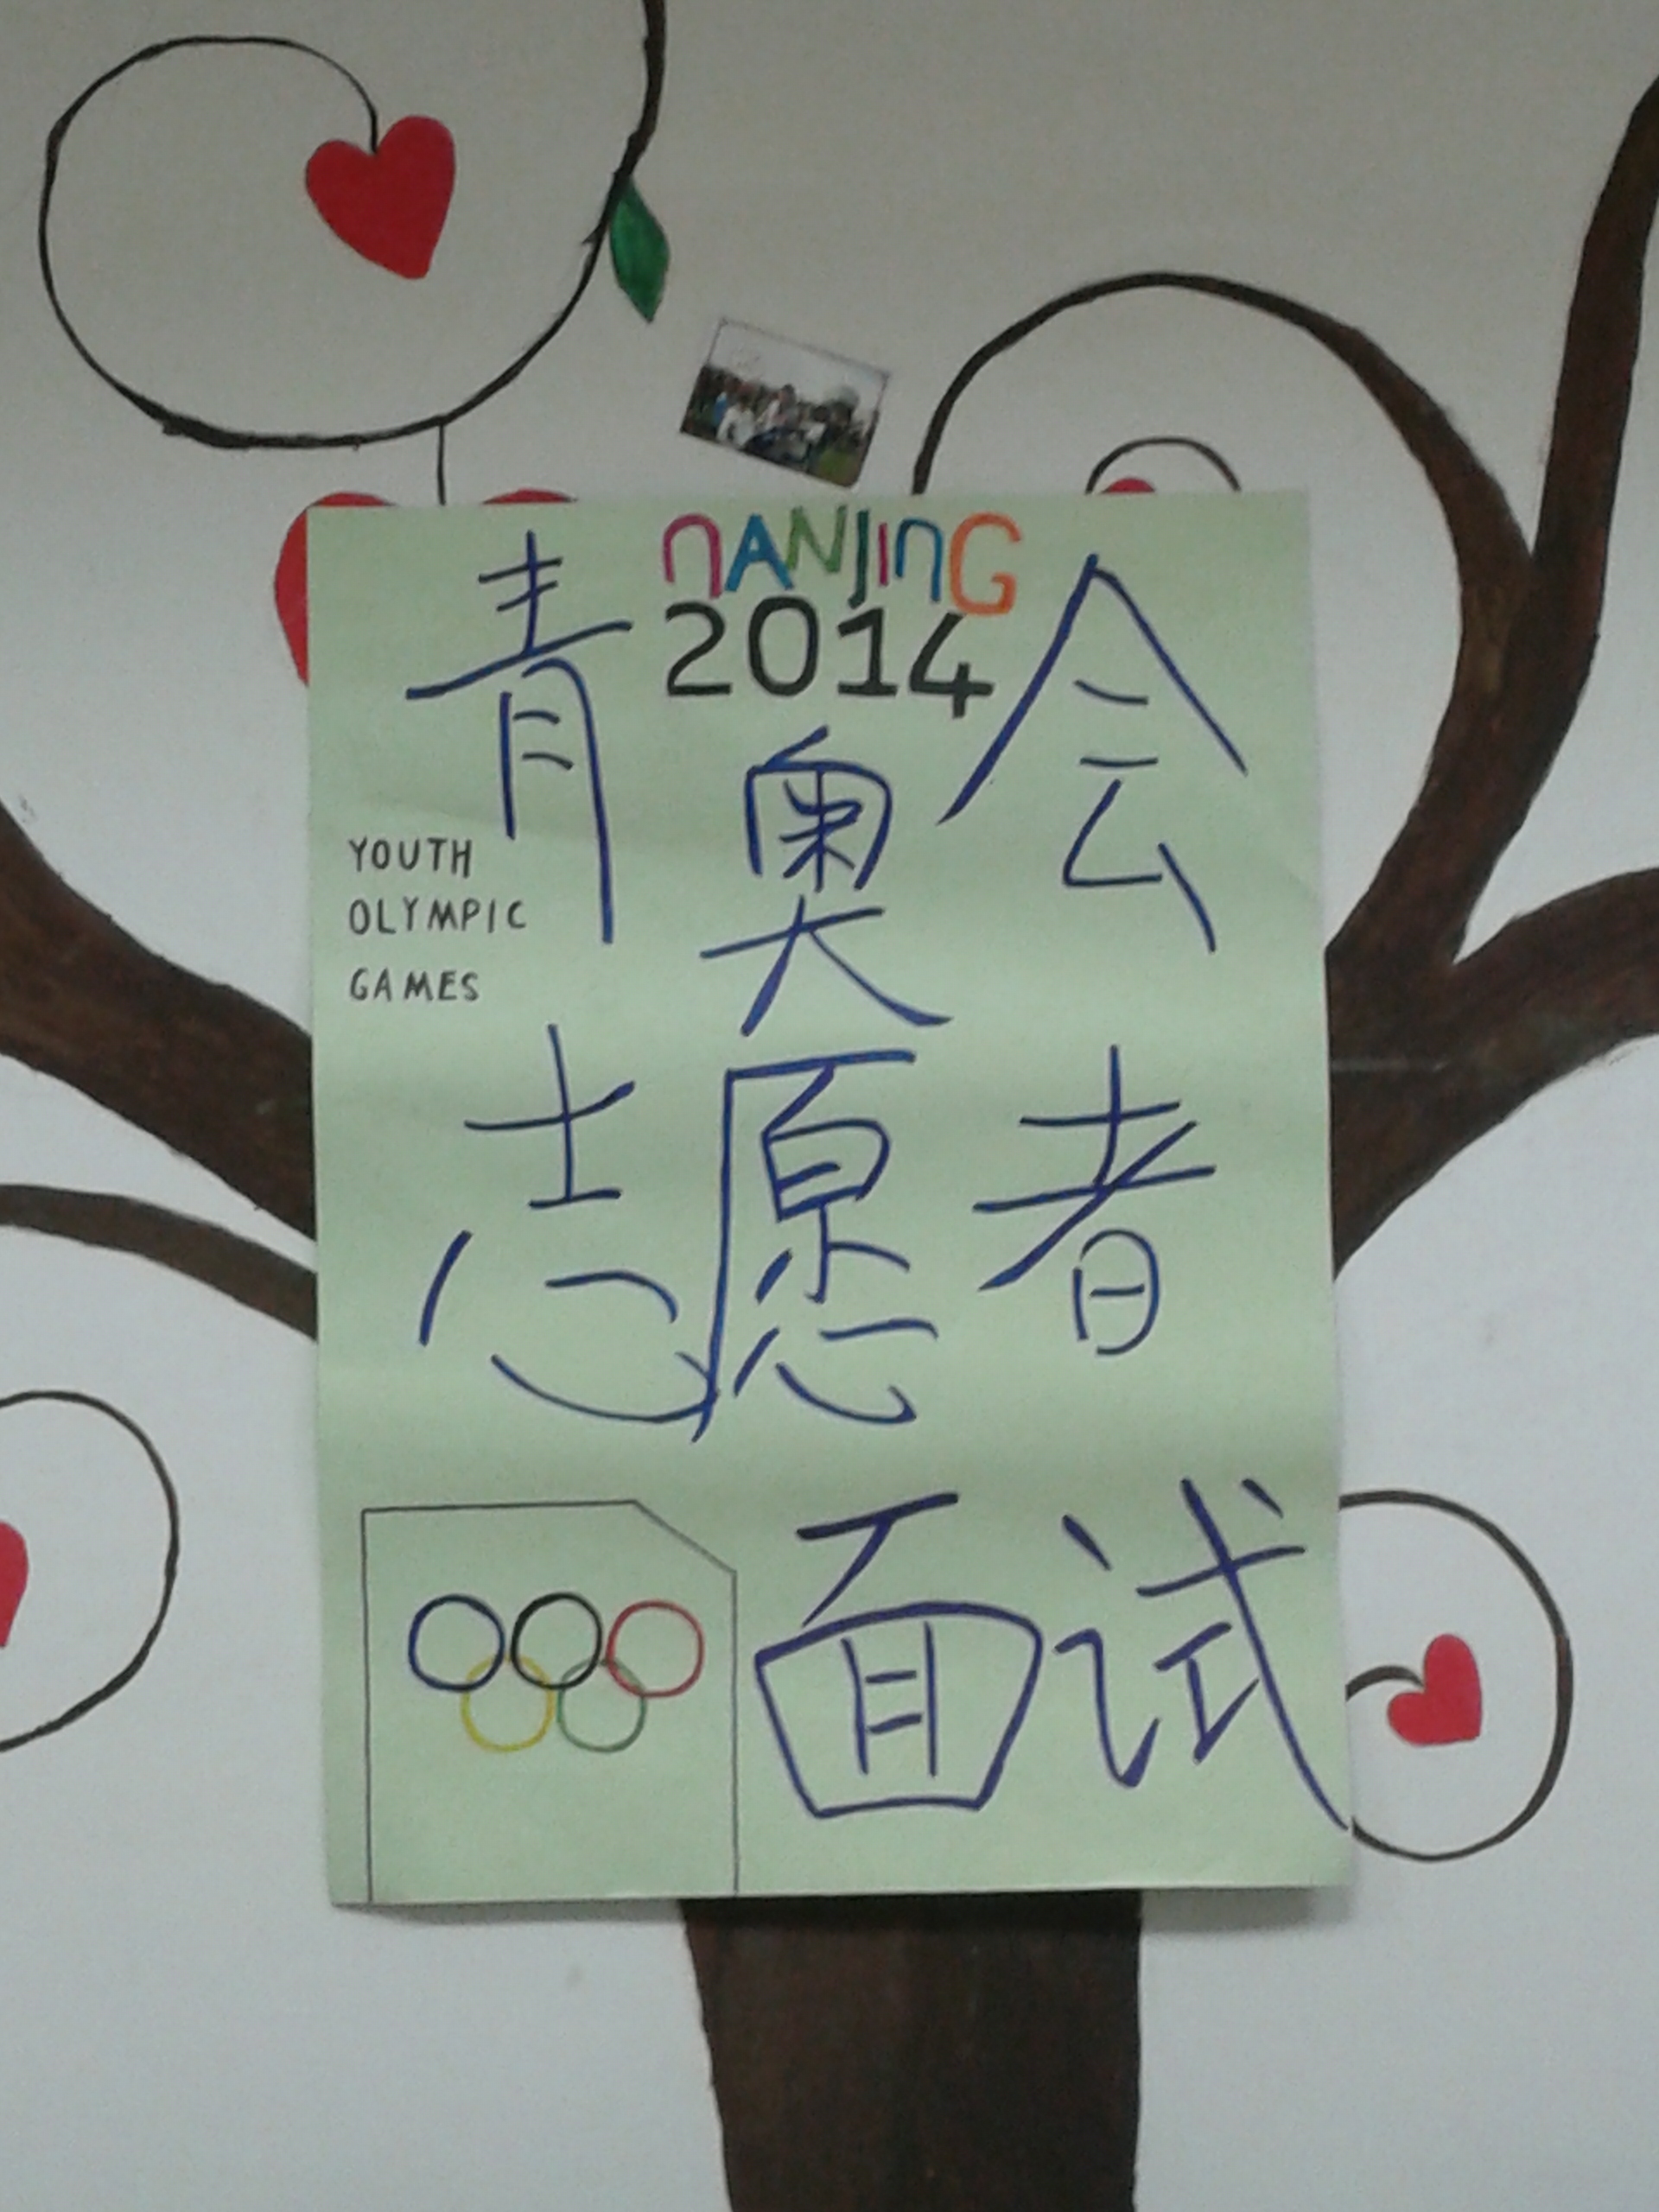 nANJInG
2014
青奥会
YOUTH
OLYMPIC
GAMES
志愿者
面试